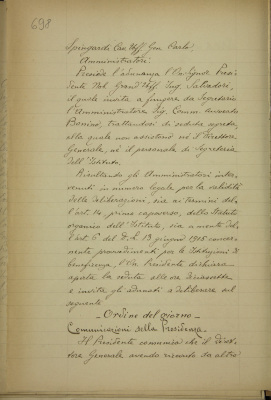 698
Spingardi Cav. Uff. Gen. Carlo
Amministratori.
Presiede l'adunanza l'On. Signor Presi-
dente Nob. Grand'Uff. Ing. Salvadori,
il quale invita a fungere da Segretario
l'Amministratore Ing. Comm.
Bonino, trattandosi di seduta segreta,
alla quale non assistono nè il Direttore
Generale, nè il personale di Segreteria
dell'Istituto.
Risultando gli Amministratori inter-
venuti in numero legale per la validità
delle deliberazioni, sia ai termini del-
l'art. 14, primo capoverso, dello Statuto
organico dell'Istituto, sia a mente del-
l'art. 6° del D. L. 13 giugno 1915 concer-
nente provvedimenti per le Istituzioni di
beneficenza, l'Ill. Presidente dichiara
aperta la seduta alle ore diciassette
e invita gli adunati a deliberare sul
seguente
- Ordine del giorno -
Comunicazioni della Presidenza.
Il Presidente comunica che il Diret-
tore Generale avendo ricevuto da altro